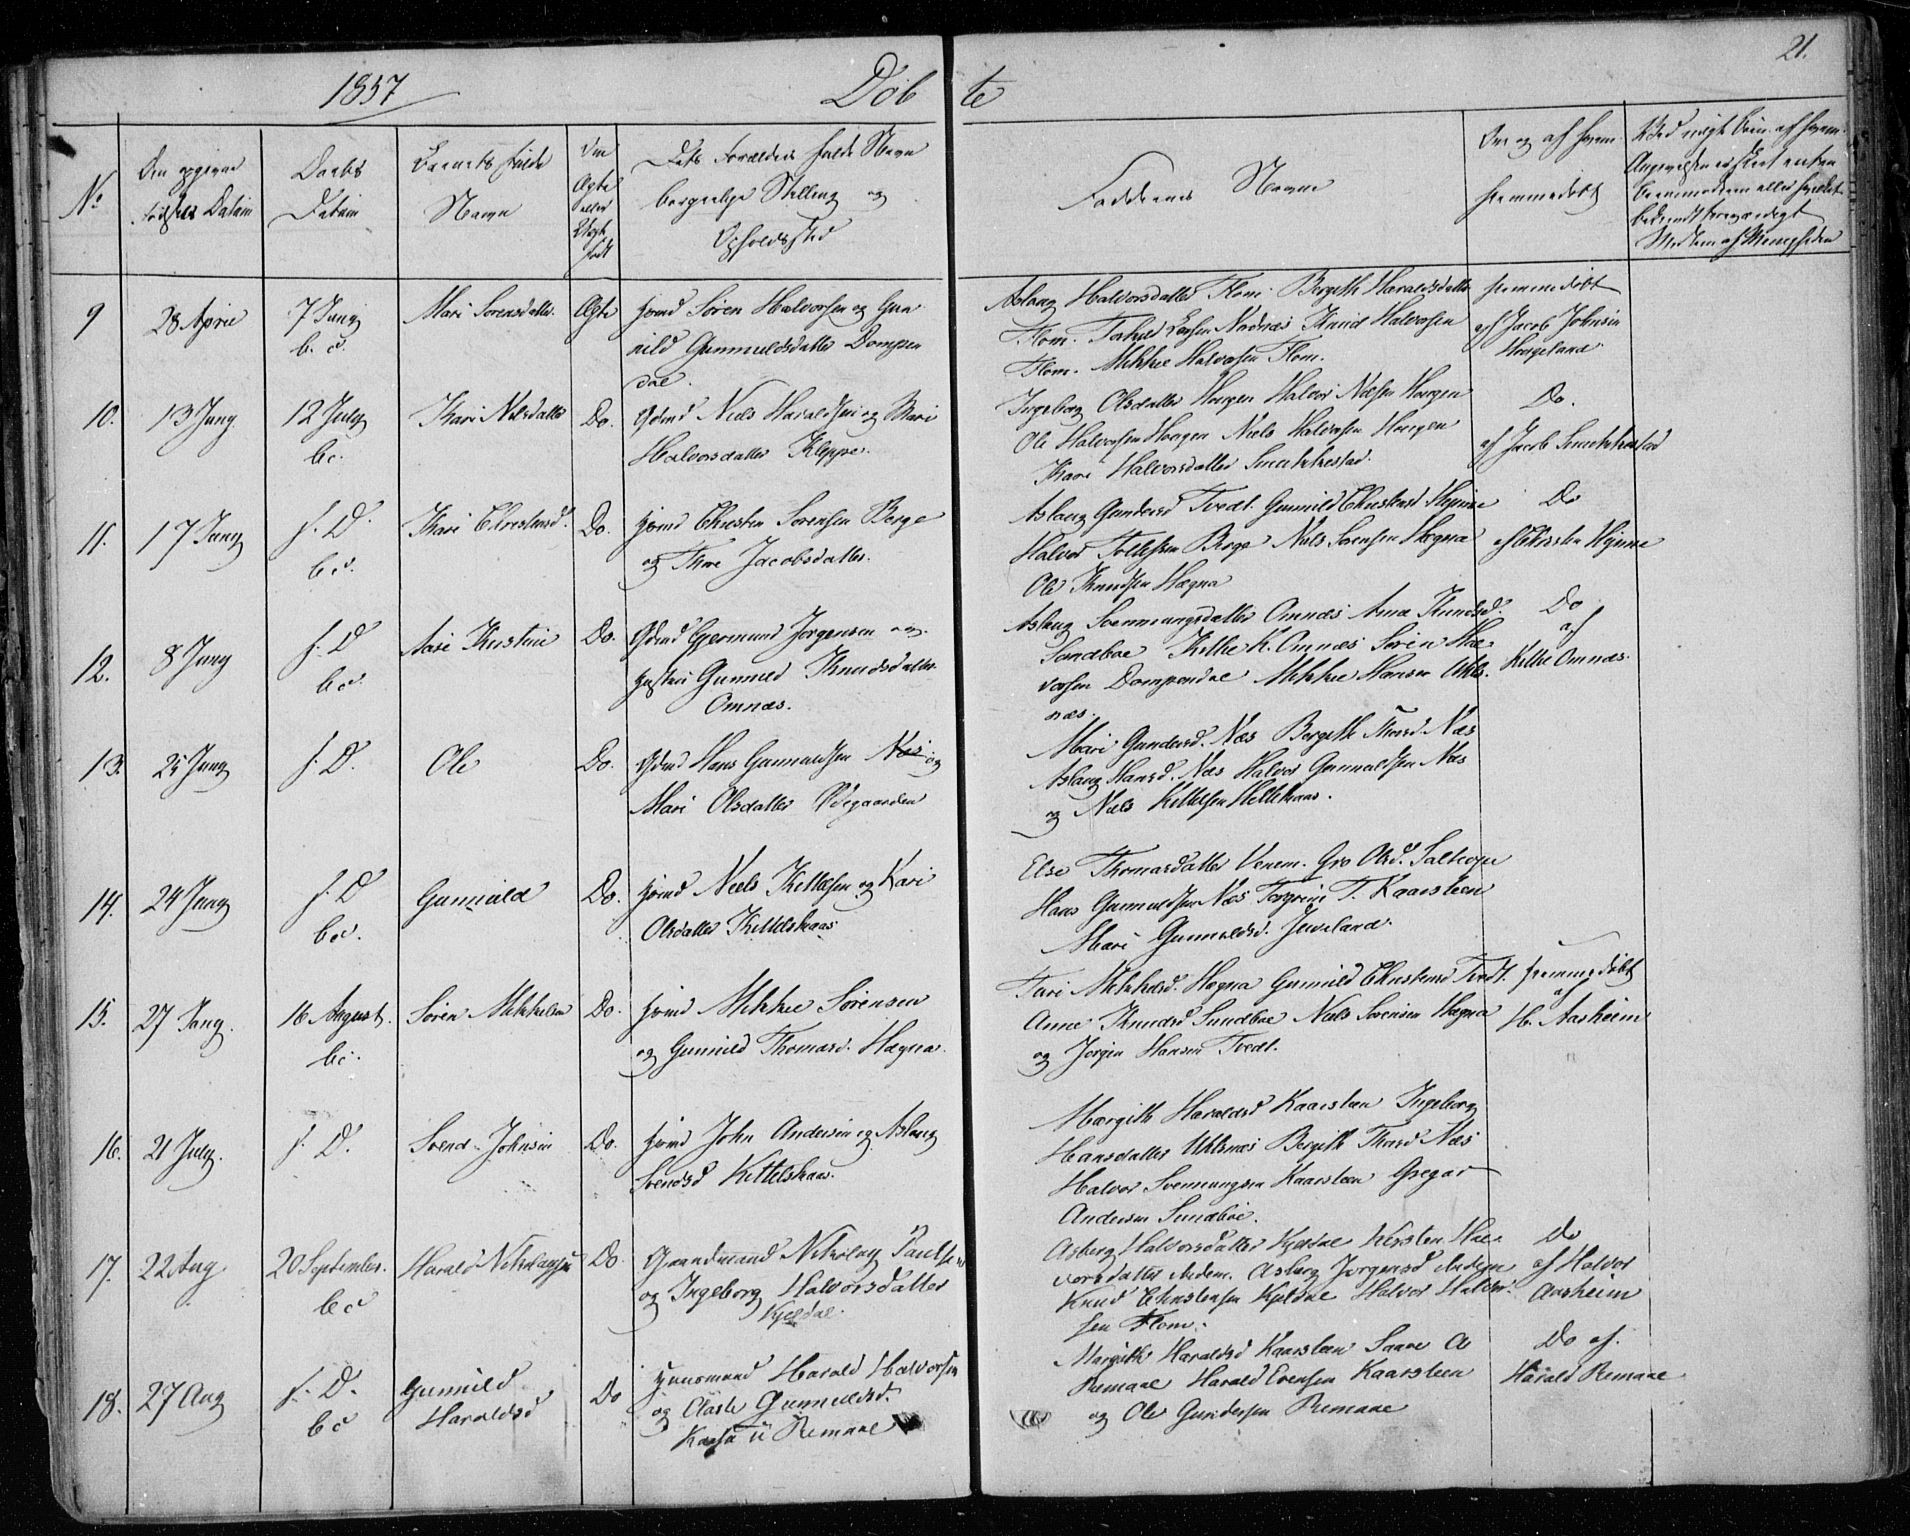 21.
1857
Döb te
No
Den opgivne
Fødsels Datum
Daabs
Datum
Barnets fulde
Navn
Om
Ægte
eller
Uægte
født
Dets Forældres fulde Navn
borgerlige Stilling og
Opholdssted
Faddernes Navne
Om og af hvem
hjemmedøbt
9
28 April
7 Juny
b. c.
Mari Sorensdatter
Ægte
Hmd Sören Halvorsen og Gun
nild Gunnuldsdatter Dompen
dal.
Aslaug Halvorsdatter Flom. Bergith Haraldsdatter
Flom. Nadnæs Knud Halvorsen
Flom. Mikkel Halvorsen Flom.
hjemmedøbt
af Jacob Johnsen
Haugeland
10.
13 Juny
12 July
bc.
Kari Nilsdatter
Do.
Gdmd Niels Haraldsen og Mari
Halvorsdatter Kleppe.
Ingeborg Olsdatter Haugen Halvor Nilsen Haugen
Ole Halvorsen Haugen Niels Halvorsen Haugen
Kari Halvorsdatter Smukkestad.
Do.
af Jacob Smukkestad
11.
17 Juny
f. D.
b c.
Kari Christensd.
Do.
Hmd Christen Sorensen Berge
og Thore Jacobsdatter.
Aslaug Gundersd Tvedt. Gunnild Christensd Hynne
Halvor Tollefsen Berge Niels Sorensen Hægna
Ole Knudsen Hægna
Do
af Christen Hynne
12.
8 Juny
f. D
b c.
Aase Kirstine
Do.
Gdmd Gjermund Jorgensen og
Hustru Gunnild Knudsdatter
Omnæs.
Aslaug Svenningsdatter Omnæs Anne Knudsd.
Sandboe Kittil K. Omnæs Sören Hal
vorsen Dompendal Mikkel Hansen Uhls
næs.
Do
af
Kittil Omnæs.
13.
25 Juny
f. D.
Ole
Do.
Gdmd Hans Gunnuldsen Næs og
Mari Olsdatter Ødegaarden
Mari Gundersd. Næs Bergith Thorsd Næs
Aslaug Hansd. Næs Halvor Gunnuldsen Næs
og Niels Kittilsen Kittilshaas.
14.
24 Juny
f. D
b c.
Gunnild
Do.
Hmd Niels Kittilsen og Kari
Olsdatter Kittelshaas
Else Thomasdatter Venem. Gro Olsd.
Hans Gunnuldsen Næs T. Kaarsteen
Mari Gunnuldsd. Juveland.
15.
27 Juny.
16 August.
bc.
Sören Mikkelsen
Do.
Hmd Mikkel Sörensen
og Gunnild Thomasd. Hægna.
Tari Mikkelsd. Hægna Gunnild Christensd Tvedt.
Anne Knudsd Sundboe Niels Sorensen Hægna
og Jorgen Hansen Tvedt.
hjemmedøbt
af
H. Aasheim
16.
21 July.
f. D.
Svend Johnsen
Do.
Hmd John Andersen og Aslaug
Svendsd Kittelshaas.
Margith Haraldsd Kaarsteen Ingeborg
Hansdatter Uhlsnæs Bergith Thorsd Næs
Halvor Svenningsen Kaarsteen Gregar
Andersen Sundboe.
17.
22 Aug
20 September.
b c
Harald Nikolaysen
Do
Gaardmand Nikolay Paulsen
og Ingeborg Halvorsdatter
Kjeldal.
Asberg Halvorsdatter Kjeldal Kirsten Hal
vorsdatter ibidem. Asberg Jorgensd ibidem
Knud Christensen Kjeldal Halvor Halvor
sen Flom.
Do
af Halvor
Aasheim
18.
27 Aug
f. D.
b c
Gunnild
Haraldsd
Do
Huusmand Harald Halvorsen
og Aaste Gunnuldsd.
Kaasa u Remaal
Margith Haraldsd Kaarsteen
Remaal Harald Evensen Kaarsteen
og Ole Gundersen Remaal
Do af.
Harald Remaal